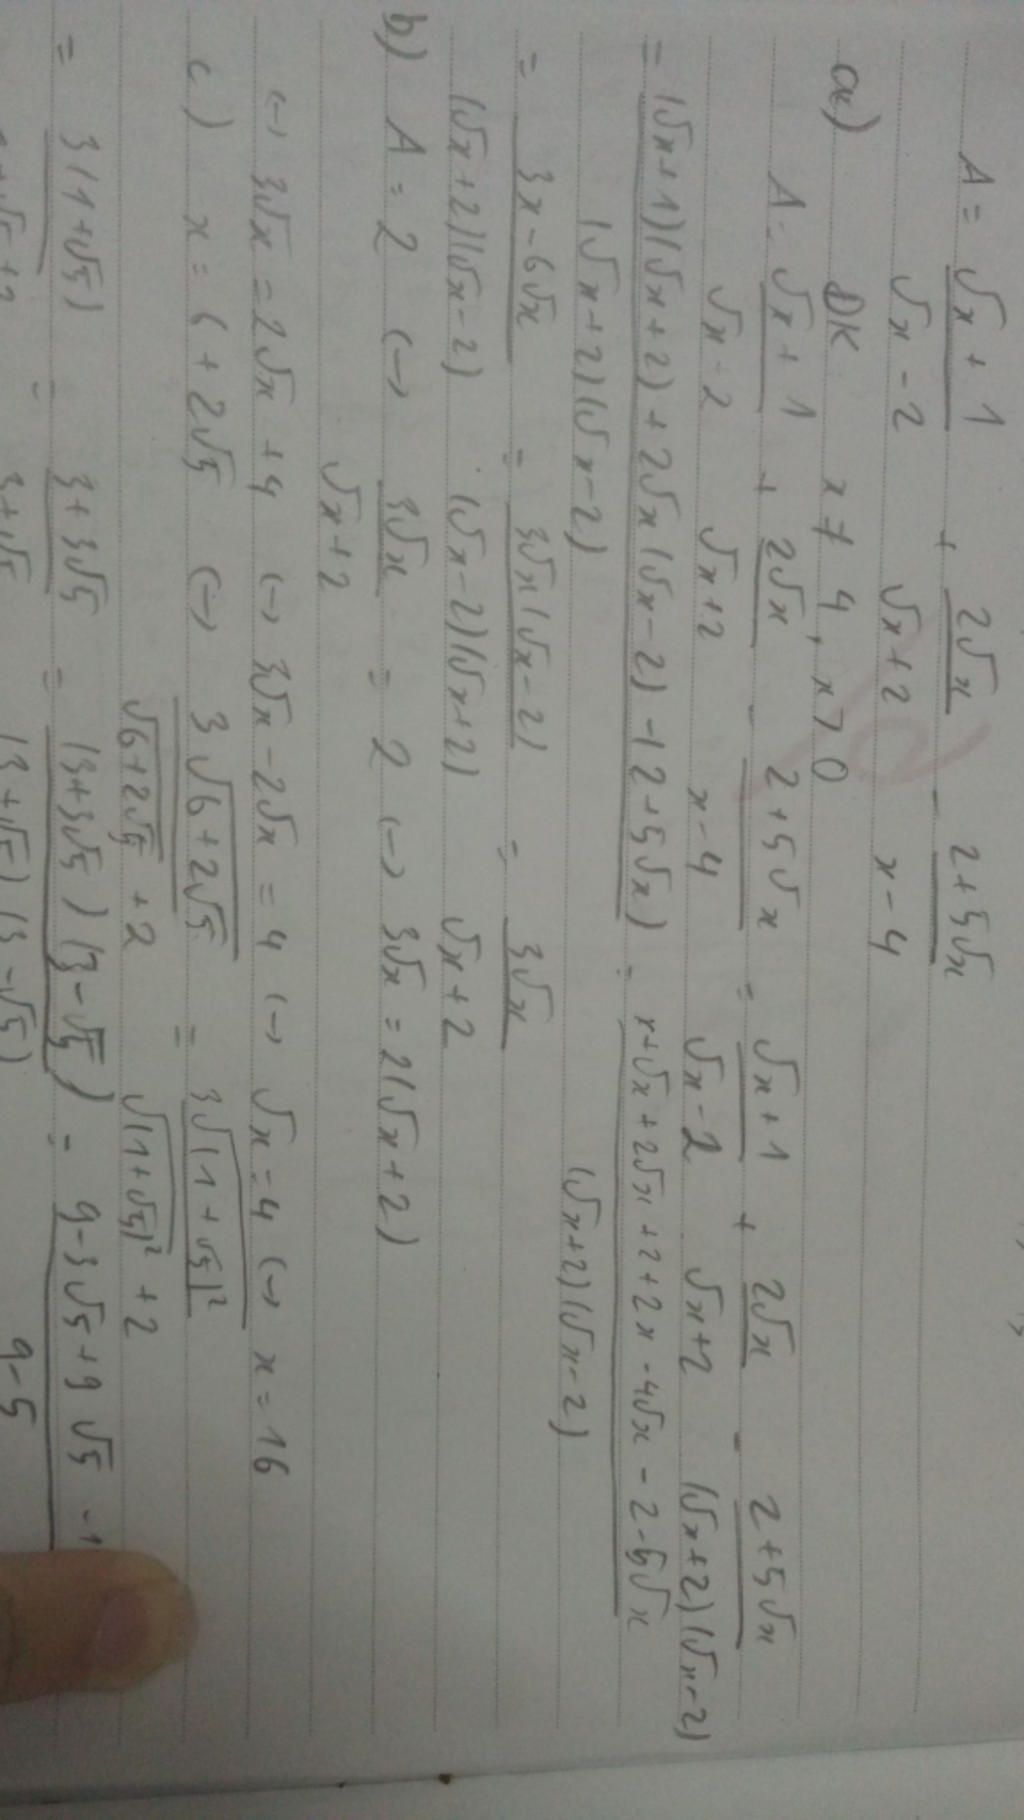 A = (√x + 1)/(√x - 2) + 2√x/(√x + 2) - (2 + 5√x)/(x - 4)
a) ĐK x ≠ 4, x > 0
A = (√x + 1)/(√x - 2) + 2√x/(√x + 2) - (2 + 5√x)/(x - 4) = (√x + 1)/(√x - 2) + 2√x/(√x + 2) - (2 + 5√x)/((√x + 2)(√x - 2))
= ((√x + 1)(√x + 2) + 2√x(√x - 2) - (2 + 5√x))/((√x + 2)(√x - 2)) = (x + √x + 2√x + 2 + 2x - 4√x - 2 - 5√x)/((√x + 2)(√x - 2))
= (3x - 6√x)/((√x + 2)(√x - 2)) = 3√x(√x - 2)/((√x - 2)(√x + 2)) = 3√x/(√x + 2)
b) A = 2 (-> 3√x/(√x + 2) = 2 (-> 3√x = 2(√x + 2)
(-> 3√x = 2√x + 4 (-> 3√x - 2√x = 4 (-> √x = 4 (-> x = 16
c) x = 6 + 2√5 (-> 3√(6 + 2√5)/(√(6 + 2√5) + 2) = 3√((1 + √5)²)/(√((1 + √5)²) + 2)
= 3(1 + √5)/(1 + √5 + 2) = (3 + 3√5)/(3 + √5) = (3 + 3√5)(3 - √5)/((3 + √5)(3 - √5)) = (9 - 3√5 + 9√5 - 1)/(9 - 5)